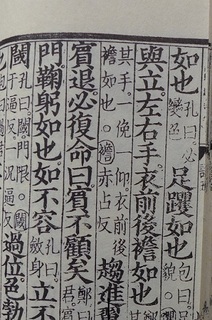 如也孔曰必變色足躩如也包曰貌
與立左右手衣前後襜如也
其手一俛一仰衣前後襜如也襜赤占反趨進翼
賓退必復命曰賓不顧矣鄭曰
門鞠躬如也如不容孔曰斂身立不
閾孔曰閾門限逼反況逼反過位色勃